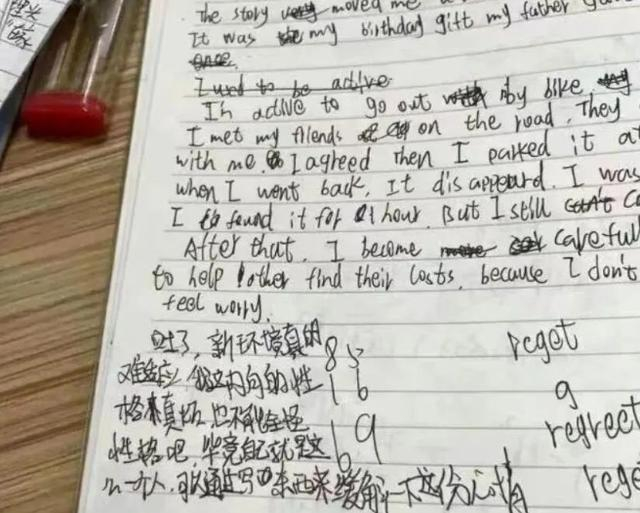 The story moved me
It was my birthday gift my father
I used to be active
In active to go out by bike
I met my friends on the road. They
with me. I agreed Then I parked it
when I went back, It disappeard. I was
I found it for 1 hour. But I still can't
After that. I become careful
to help other find their losts. because I don't
feel worry.
吐了，新环境真的 85 reget
难适应，我这内向的性 16 g
格真 也不能全怪 19 regreet
性格吧，毕竟自己就是这 6
么一个人，可以通过写 东西来缓解一下这份心情 rege